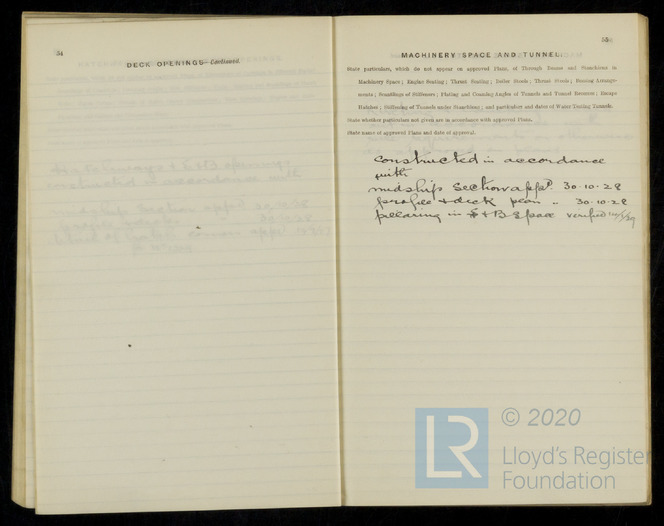 54
DECK OPENINGS—Continued.
55
MACHINERY SPACE AND TUNNEL.
State particulars, which do not appear on approved Plans, of Through Beams and Stanchions in
Machinery Space; Engine Seating; Thrust Seating; Boiler Stools; Thrust Stools; Bracing Arrange-
ments; Scantlings of Stiffeners; Plating and Coaming Angles of Tunnels and Tunnel Recesses; Escape
Hatches; Stiffening of Tunnels under Stanchions; and particulars and dates of Water Testing Tunnels.
State whether particulars not given are in accordance with approved Plans.
State name of approved Plans and date of approval.
Constructed in accordance
with
midship Section appd 30.10.28
profile & deck plan " 30.10.28
pillaring in & B space verified
© 2020
LR
Lloyd's Register
Foundation